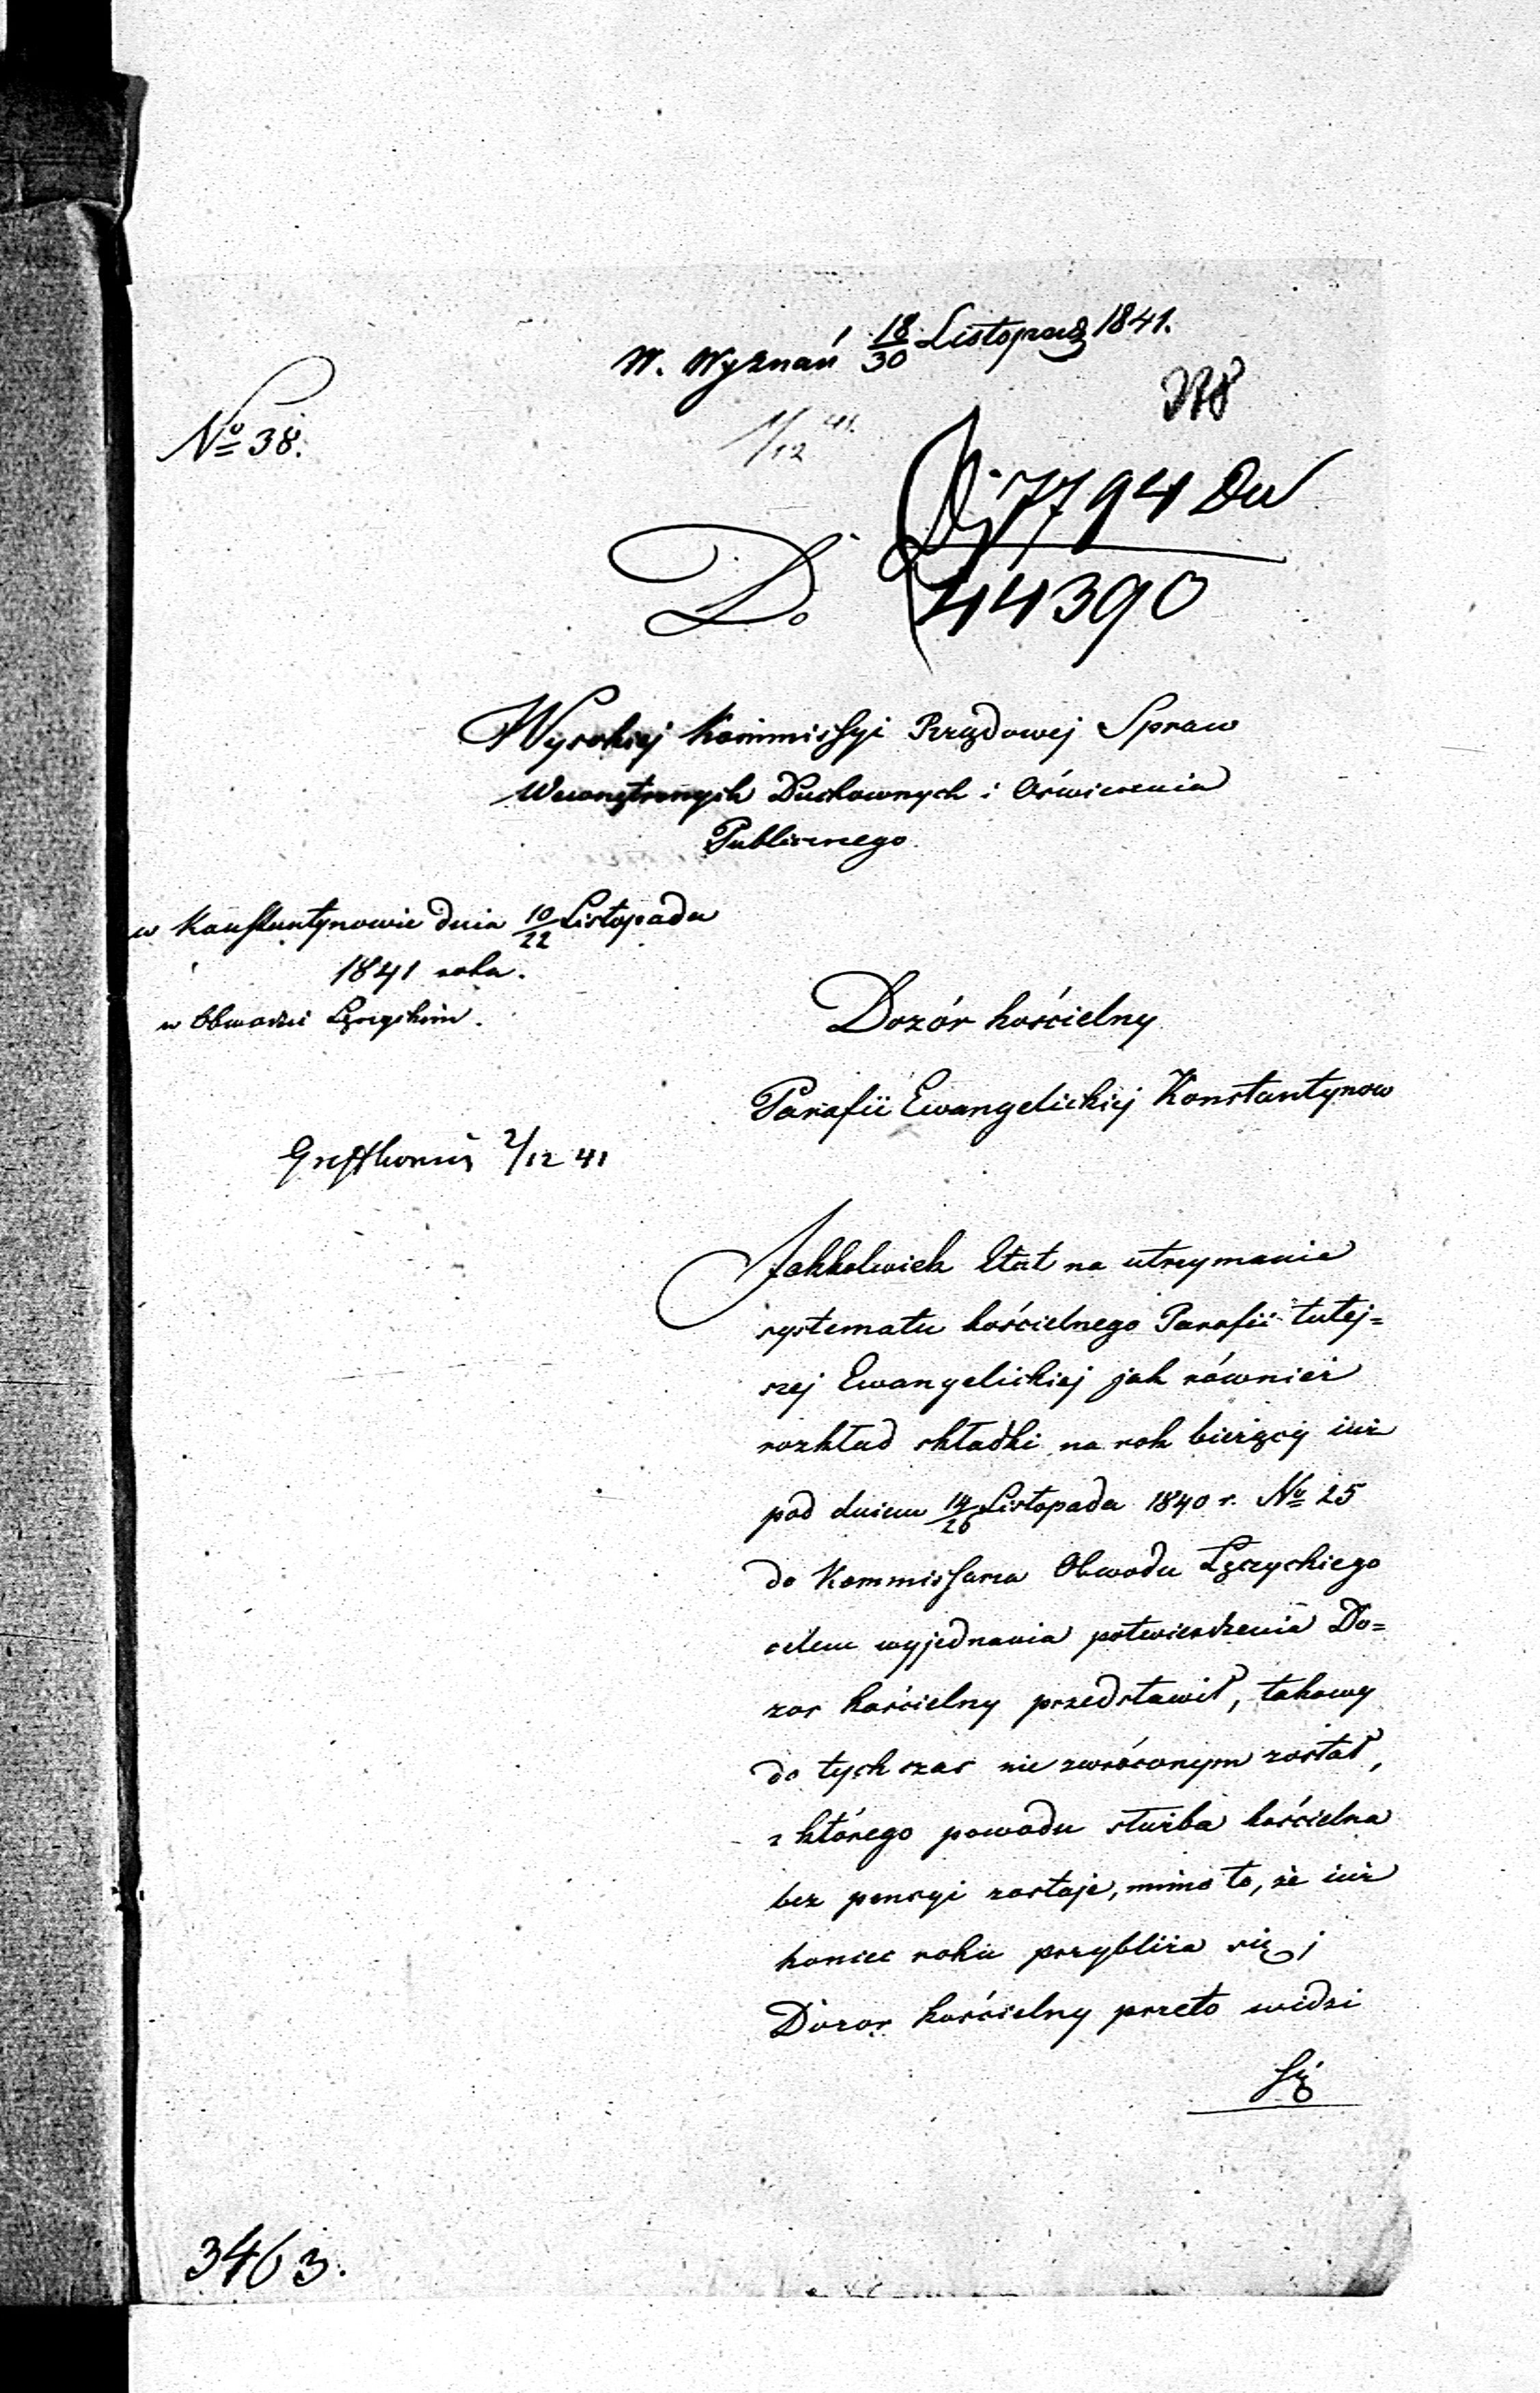 W. Wyznań 18/30 Listopad 1841.
No 38.
1/12 41.
7794 Du
44390
Do
Wysokiej Kommissyi Rządowej Spraw
Wewnętrznych Duchownych i Oświecenia
Publicznego
w Konstantynowie dnia 10/22 Listopada
1841 roku.
w Obwodzie Łęczyckim.
Dozór kościelny
Parafii Ewangelickiej Konstantynow
2/12 41
Jakkolwiek Etat na utrzymanie
systematu kościelnego Parafii tutej=
szej Ewangelickiej jak również
rozkład składki na rok bieżący iuż
pod dniem 14/26 Listopada 1840 r. No 25
do Kommissarza Obwodu Łęczyckiego
celem wyjednania potwierdzenia Do=
zor kościelny przedstawił, takowy
do tych czas nie zwróconym został,
z którego powodu służba kościelna
bez pensyi zostaje, mimo to, że iuż
koniec roku przybliża się;
Dozor kościelny przeto widzi
się
3463.